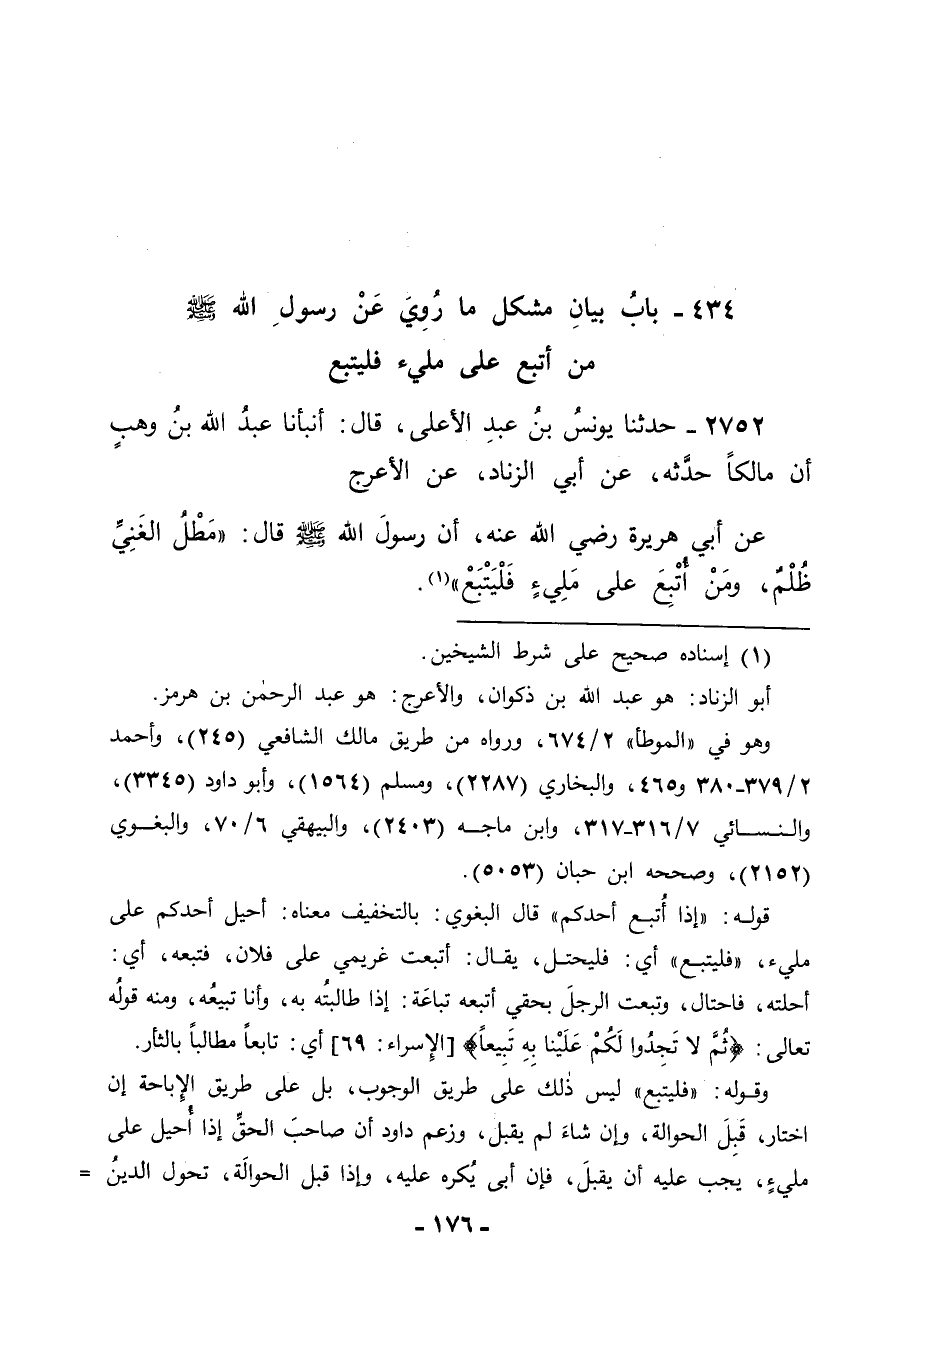 ٤٣٤ ـ بابُ بيانِ مشكل ما رُوِيَ عَنْ رسولِ الله ﷺ
من أتبع على مليء فليتبع
٢٧٥٢ ـ حدثنا يونسُ بنُ عبدِ الأعلى، قال: أنبأنا عبدُ الله بنُ وهبٍ
أن مالكاً حدَّثه، عن أبي الزناد، عن الأعرج
عن أبي هريرة رضي الله عنه، أن رسولَ الله ﷺ قال: «مَطْلُ الغَنِيِّ
ظُلْمٌ، ومَنْ أُتْبِعَ على مَلِيءٍ فَلْيَتْبَعْ»(١).
(١) إسناده صحيح على شرط الشيخين.
أبو الزناد: هو عبد الله بن ذكوان، والأعرج: هو عبد الرحمٰن بن هرمز.
وهو في «الموطأ» ٢/٦٧٤، ورواه من طريق مالك الشافعي (٢٤٥)، وأحمد
٢/٣٧٩ـ٣٨٠ و٤٦٥، والبخاري (٢٢٨٧)، ومسلم (١٥٦٤)، وأبو داود (٣٣٤٥)،
والنسائي ٧/٣١٦ـ٣١٧، وابن ماجه (٢٤٠٣)، والبيهقي ٦/٧٠، والبغوي
(٢١٥٢)، وصححه ابن حبان (٥٠٥٣).
قوله: «إذا أُتبع أحدكم» قال البغوي: بالتخفيف معناه: أحيل أحدكم على
مليء، «فليتبع» أي: فليحتل، يقال: أتبعت غريمي على فلان، فتبعه، أي:
أحلته، فاحتال، وتبعت الرجلَ بحقي أتبعه تباعَة: إذا طالبتُه به، وأنا تبيعُه، ومنه قولُه
تعالى: ﴿ثُمَّ لا تَجِدُوا لَكُمْ عَلَيْنا بِهِ تَبِيعاً﴾ [الإسراء: ٦٩] أي: تابعاً مطالباً بالثأر.
وقوله: «فليتبع» ليس ذٰلك على طريق الوجوب، بل على طريق الإباحة إن
اختار، قَبِلَ الحوالة، وإن شاءَ لم يقبل، وزعم داود أن صاحبَ الحقِّ إذا أُحيل على
مليءٍ، يجب عليه أن يقبلَ، فإن أبى يُكره عليه، وإذا قبل الحوالَة، تحول الدينُ =
ـ ١٧٦ ـ